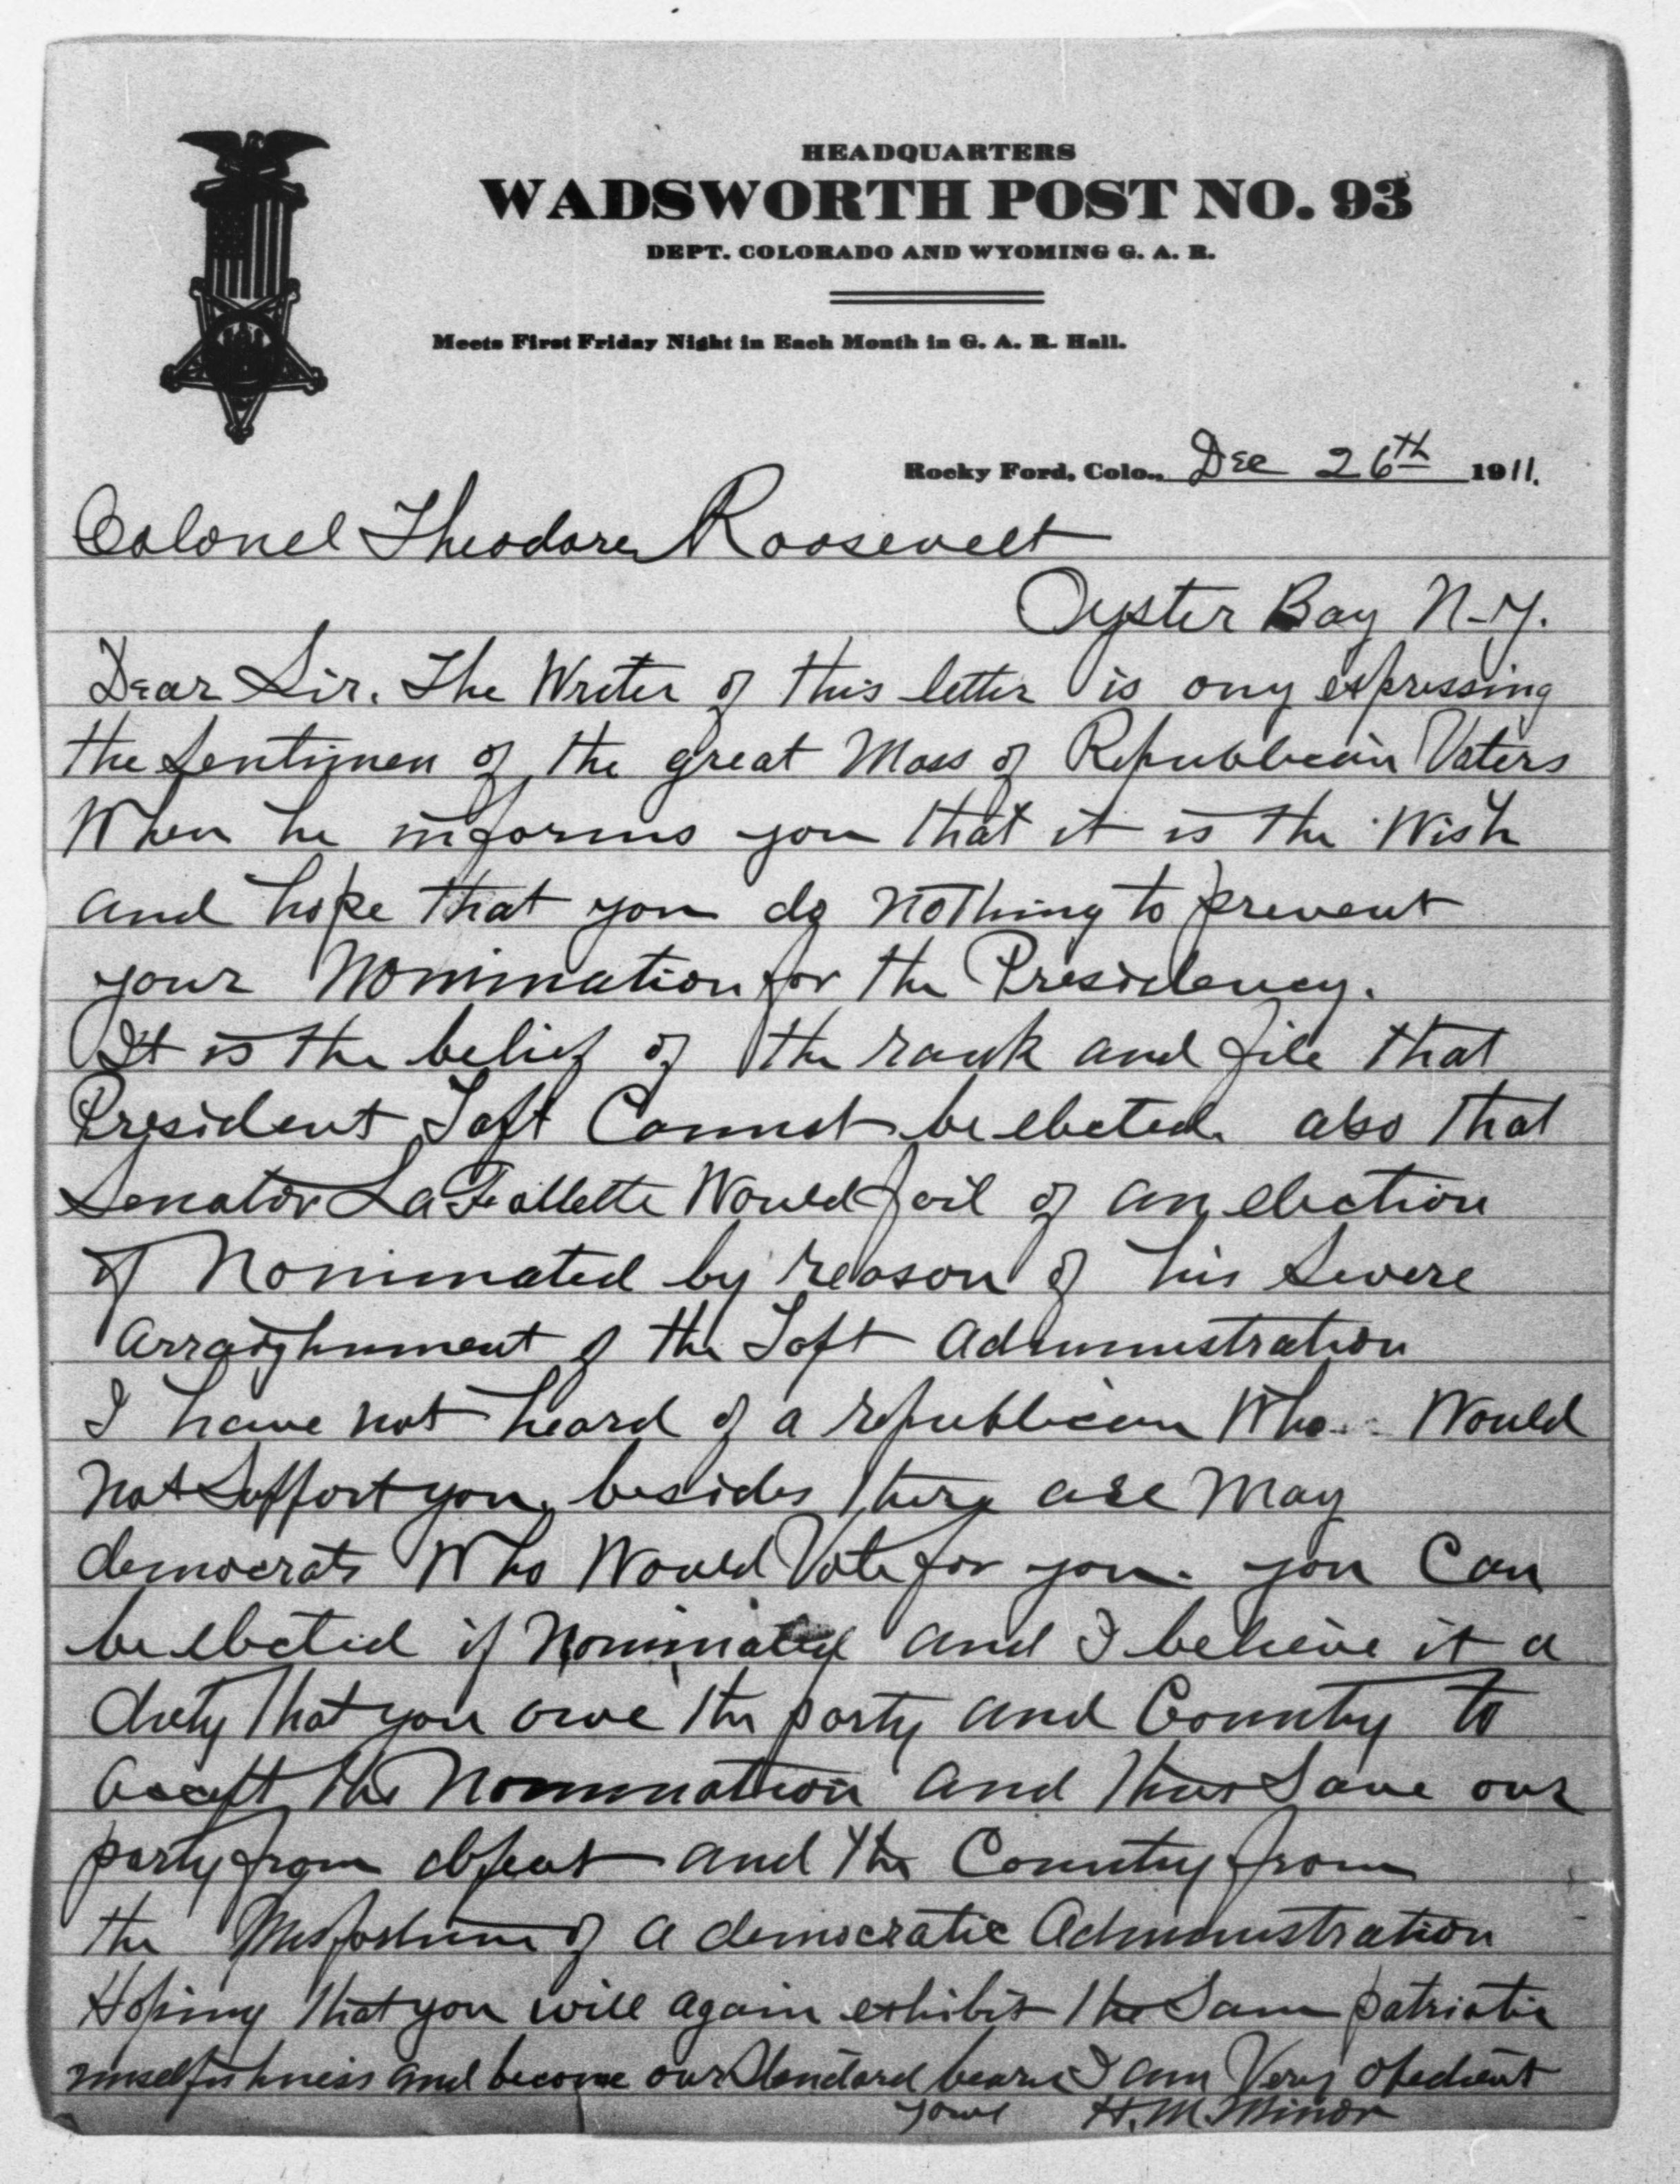 HEADQUARTERS
WADSWORTH POST NO. 93
DEPT. COLORADO AND WYOMING G. A. R.
Meets First Friday Night in Each Month in G. A. R. Hall.
Rocky Ford, Colo., Dec 26th 1911.
Colonel Theodore Roosevelt
Oyster Bay N-Y.
Dear Sir. The Writer of this letter is ony expressing
the Sentimen of the great Mass of Republican Voters
When he informs you that it is the Wish
and hope that you do nothing to prevent
your Nomination for the Presidency.
It is the belief of the rank and file that
President Taft Cannot be elected. also that
Senator LaFollette Would fail of an election
if Nominated by reason of his Severe
Arraighnment of the Taft Administration
I have not heard of a republican Who Would
not Support you, besides there are May
democrats Who Would Vote for you. you Can
be elected if Nominated and I believe it a
duty that you owe the party and Country to
accept the Nomination and thus Save our
party from defeat and the Country from
the Misfortune of a democratic Administration
Hoping that you will again exhibit the Same patriotic
unselfishness and become our Standard bearer I am Very obedient
yours H. M. Minor